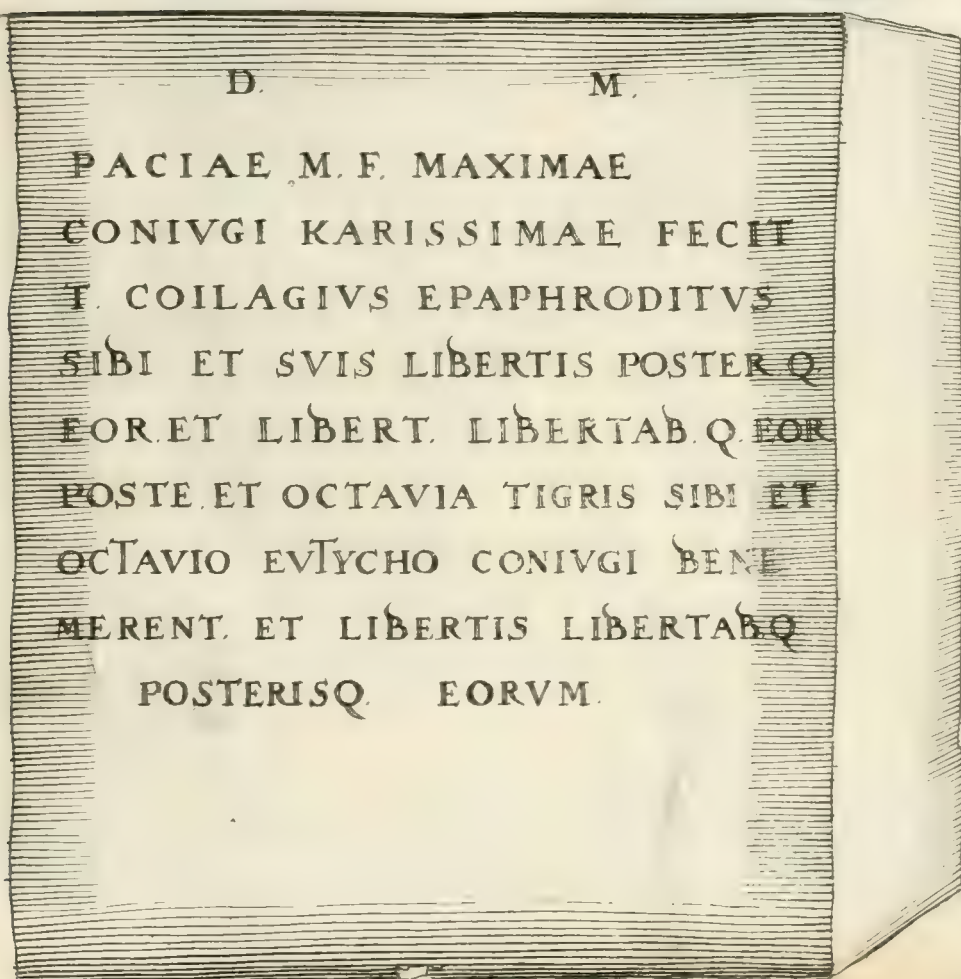 D. M.
PACIAE M. F. MAXIMAE
CONIVGI KARISSIMAE FECIT
T. COILAGIVS EPAPHRODITVS
SIBI ET SVIS LIBERTIS POSTER Q
EOR. ET LIBERT. LIBERTAB. Q. EOR
POSTE. ET OCTAVIA TIGRIS SIBI ET
OCTAVIO EVTYCHO CONIVGI BENE
MERENT. ET LIBERTIS LIBERTABQ
POSTERISQ. EORVM.